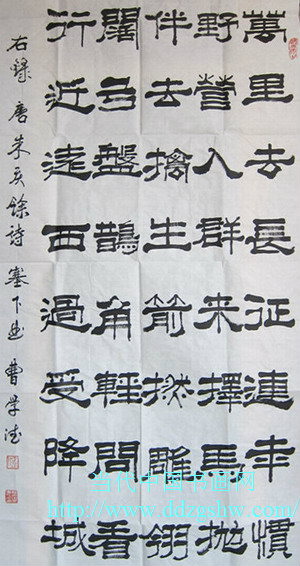 萬里去長征連年慣
野營入群来擇馬抛
伴去擒生箭撚雕翎
闊弓盤鵲角輕問看
行近遠西過受降城
右録唐朱庆餘詩塞下曲曹学
当代中国书画网
http://www.ddzgshw.com